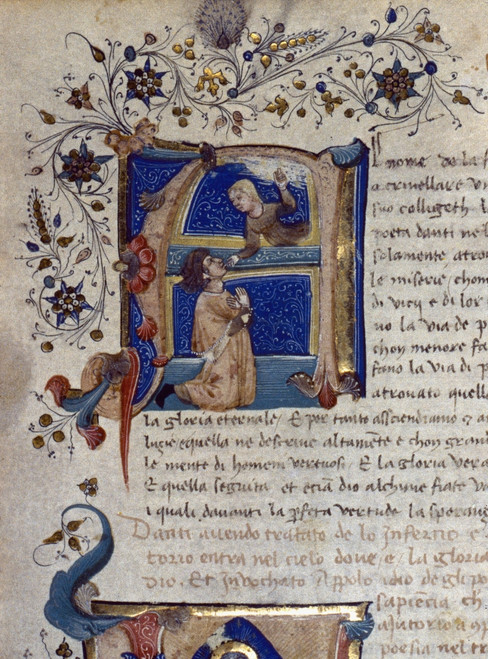 L nome de la
acrivellare
suo collegeth
poeta danti nel
solamente atro
le miserie / chom
di vicy e di lor
no la via de p
chon menore fa
fano la via di p
atrovato quell
la gloria eternale / E per tanto asciendiamo
lugie / e quella ne descrive altamẽte e chon gran
le mente di homeni vertuosi / E la gloria vera
E quella seguita et eciã dio alchune fiate v
i quali davanti la p̱feta vertude la speran
Danti avendo tratato de lo inferno e
torio entra nel cielo dove / e / la gloria
Dio. Et invochato Apolo idio de gli po
sapiẽcia ch
aiutorio a
poesia nel tr